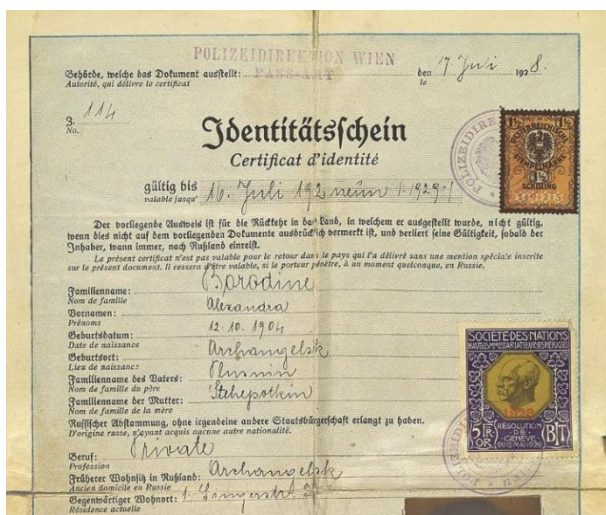 POLIZEIDIREKTION WIEN
PASS-AMT
Behörde, welche das Dokument ausstellt:
Autorité, qui délivre le certificat
den 17. Juli 1928.
le
Z. 114
No.
Identitätsschein
Certificat d'identité
gültig bis 16. Juli 192neun /:1929:/
valable jusqu'
Der vorliegende Ausweis ist für die Rückkehr in das Land, in welchem er ausgestellt wurde, nicht gültig,
wenn dies nicht auf dem vorliegenden Dokumente ausdrücklich vermerkt ist, und verliert seine Gültigkeit, sobald der
Inhaber, wann immer, nach Rußland einreist.
Le présent certificat n'est pas valable pour le retour dans le pays qui l'a délivré sans une mention spéciale inscrite
sur le présent document. Il cessera d'être valable, si le porteur pénètre, à un moment quelconque, en Russie.
Familienname: Borodine
Nom de famille
Vornamen: Alexandra
Prénoms
Geburtsdatum: 12. 10. 1904
Date de naissance
Geburtsort: Archangelsk
Lieu de naissance
Familienname des Vaters: Plusnin
Nom de famille du père
Familienname der Mutter: Stchepotkin
Nom de famille de la mère
Russischer Abstammung, ohne irgendeine andere Staatsbürgerschaft erlangt zu haben.
D'origine russe, n'ayant acquis aucune autre nationalité.
Beruf: Private
Profession
Früherer Wohnsitz in Rußland: Archangelsk
Ancien domicile en Russie
Gegenwärtiger Wohnort: 1.
Résidence actuelle
1½ 1½
ÖSTERREICHISCHE
STEMPELMARKE
1½
SCHILLING
POLIZEIDIRE
SOCIÉTÉ DES NATIONS
HAUT COMMISSARIAT POUR LES RÉFUGIÉS
1928
5 FR OR
RÉSOLUTION
DE
GENÈVE
DU 12 MAI 1926
BIT
POLIZEIDI